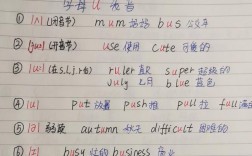 字母 u 发音
① [ʌ] (闭音节) mum 妈妈 bus 公交车
② [juː] (开音节) use 使用 cute 可爱的
③ [uː] (在 s, l, j, r 后) ruler 直尺 super 超级的
July 七月 blue 蓝色
④ [u] put 放置 push 推 pull 拉 full 满的
⑤ [ə] autumn 秋天 difficult 困难的
⑥ [ɪ] busy 忙的 business 商业